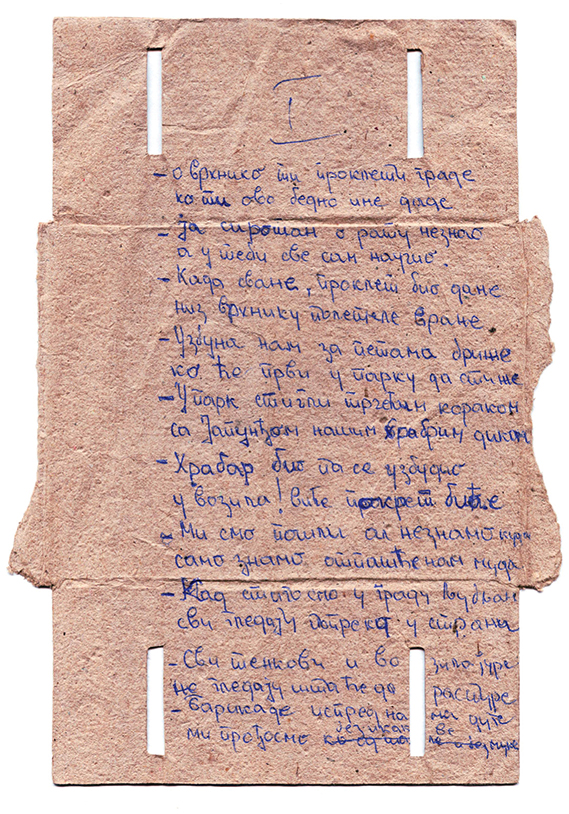 I
- О врхнико ти проклети граде
ко ти ово бедно име даде
- Ја сиротан о рату незнао
а у теби све сам научио.
- Када сване, проклет био дане
низ врхнику полетеле вране
- Узбуна нам за петама брише
ко ће први у парку да стише
- У парк стигли тргећим кораком
са Јапунџом нашим храбрим диком
- Храбар био па се узбудио
у возила! виће покрет биће
- Ми смо пошли ал незнамо куда
само знамо отпашће нам муда
- Кад стигосмо у граду Љубљани
сви гледају попреко у страни
- Сви тенкови и возила јуре
не гледају шта ће да растуре
- барикаде испред нама дупе
ми прођосмо